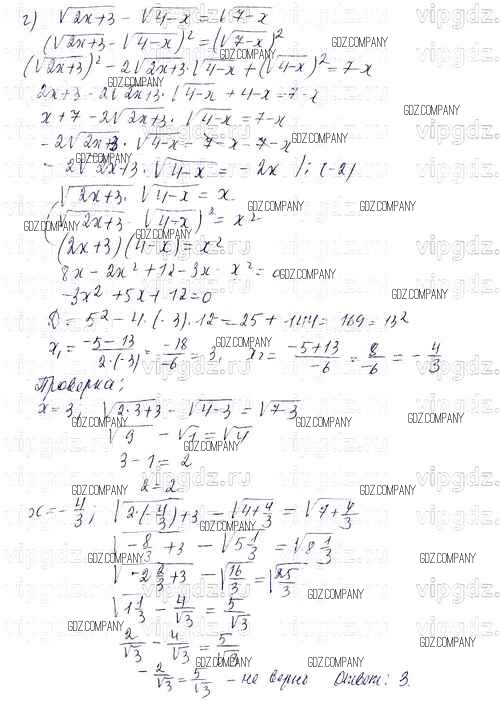 г) √(2x+3) - √(4-x) = √(7-x)
(√(2x+3) - √(4-x))² = (√(7-x))²
(√(2x+3))² - 2√(2x+3) · √(4-x) + (√(4-x))² = 7-x
2x+3 - 2√(2x+3) · √(4-x) + 4-x = 7-x
x+7 - 2√(2x+3) · √(4-x) = 7-x
-2√(2x+3) · √(4-x) = 7-x-7-x
-2√(2x+3) · √(4-x) = -2x /: (-2)
√(2x+3) · √(4-x) = x
(√(2x+3) · √(4-x))² = x²
(2x+3)(4-x) = x²
8x - 2x² + 12 - 3x - x² = 0
-3x² + 5x + 12 = 0
D = 5² - 4·(-3)·12 = 25 + 144 = 169 = 13²
x₁ = (-5-13)/(2·(-3)) = -18/-6 = 3, x₂ = (-5+13)/-6 = 8/-6 = -4/3
Проверка:
x = 3, √(2·3+3) - √(4-3) = √(7-3)
√9 - √1 = √4
3 - 1 = 2
2 = 2
x = -4/3; √(2·(-4/3)+3) - √(4+4/3) = √(7+4/3)
√(-8/3+3) - √(5 1/3) = √(8 1/3)
√(-2 2/3+3) - √(16/3) = √(25/3)
√(1 1/3) - 4/√3 = 5/√3
2/√3 - 4/√3 = 5/√3
-2/√3 = 5/√3 - не верно Ответ: 3.
GDZ.COMPANY
vipgdz.ru